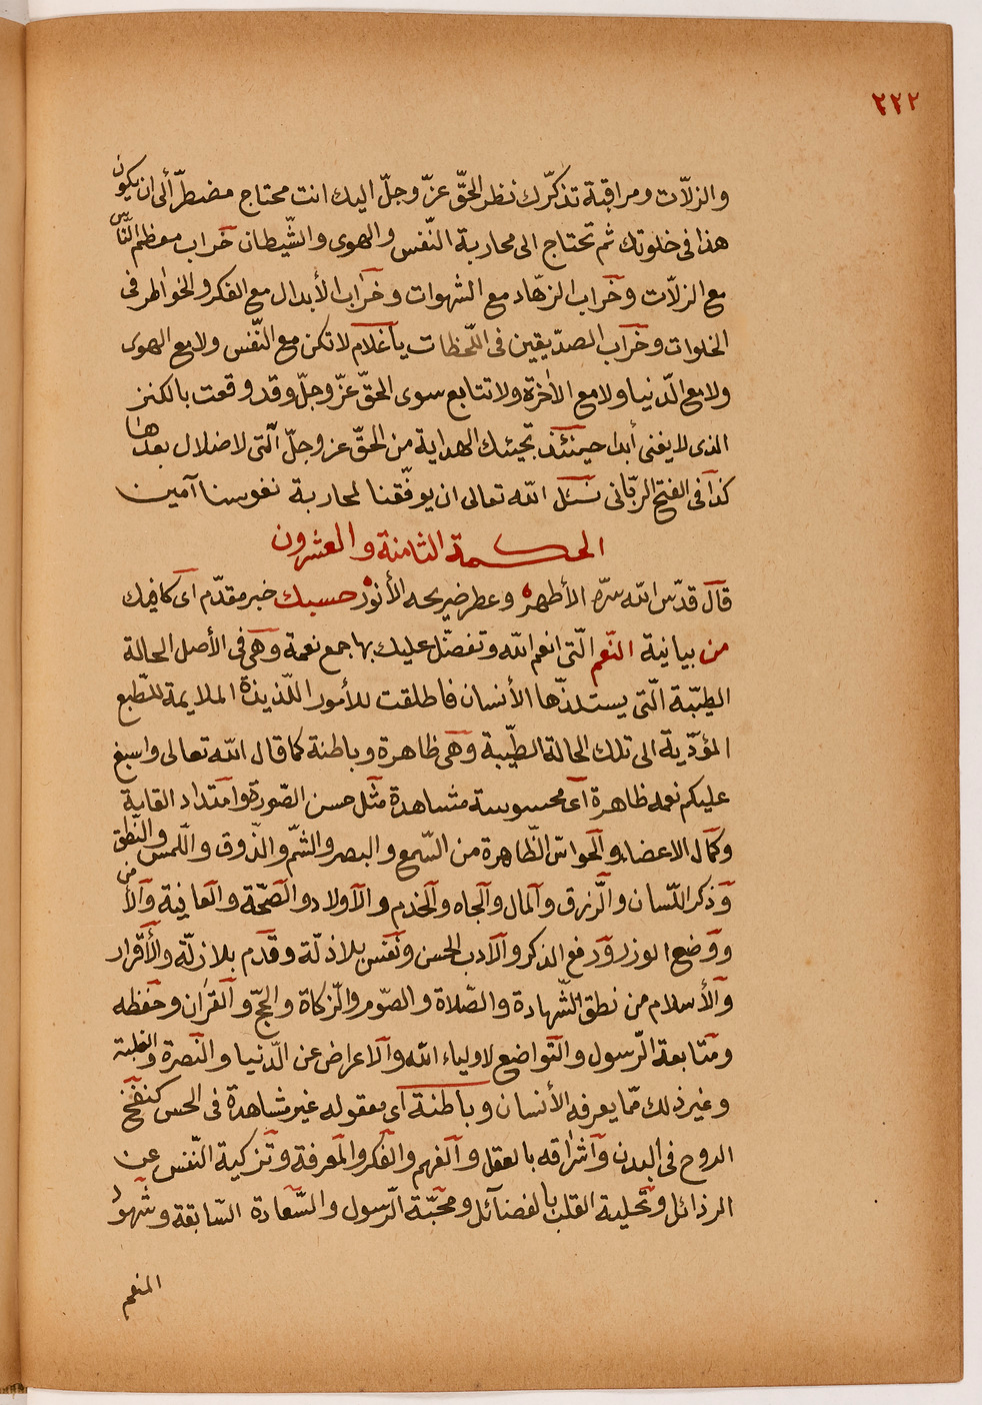 ٢٢٢
والزلّات ومراقبة تذكّرك نظر الحقّ عزّ وجلّ اليك انت محتاج مضطرّ ألى ان يكون
هذا فى خلوتك ثم تحتاج الى محاربة النّفس والهوى والشّيطان خراب معظم النّاس
مع الزلاّت وخراب الزهّاد مع الشهوات وخراب الأبدال مع الفكر والخواطر فى
الخلوات وخراب الصدّيقين فى اللّحظات يا غلام لا تكن مع النّفس ولا مع الهوى
ولا مع الدّنيا ولا مع الاخرة ولا تتابع سوى الحقّ عزّ وجلّ وقد وقعت بالكنز
الذى لا يفنى أبدا حينئذ تجيئك الهداية من الحقّ عز وجلّ الّتى لا ضلال بعدها
كذا فى الفتح الربّانى نسئل الله تعالى ان يوفّقنا لمحاربة نفوسنا آمين
الحكمة الثامنة والعشرون
قال قدّس الله سرّه الأطهر وعطر ضريحه الأنور حسبك خبر مقدّم اى كافيك
من بيانية النّعم الّتى انعم الله وتفضّل عليك بها جمع نعمة وهى فى الأصل الحالة
الطيّبة الّتى يستلذّها الأنسان فاطلقت للأمور اللّذيذة الملايمة للطّبع
المؤدّية الى تلك الحالة الطيّبة وهى ظاهرة وباطنة كما قال الله تعالى واسبغ
عليكم نعمه ظاهرة اى محسوسة مشاهدة مثل حسن الصّورة وامتداد القامة
وكمال الاعضاء والحواسّ الظّاهرة من السّمع والبصر والشّمّ والذّوق واللّمس والنّطق
وذكر اللّسان والرّزق والمال والجاه والخدم والأولاد والصّحّة والعافية والأمن
ووضع الوزر ورفع الذكر والادب الحسن ونفس بلا ذلّة وقدم بلا زلّة والأقرار
والأسلام من نطق الشّهادة والصّلاة والصّوم والزّكاة والحجّ والقران وحفظه
ومتابعة الرّسول والتّواضع لاولياء الله والاعراض عن الدّنيا والنّصرة والغلبة
وغير ذلك ممّا يعرفه الأنسان وباطنة اى معقوله غير مشاهدة فى الحس كنفخ
الروح فى البدن واشراقه بالعقل والفهم والفكر والمعرفة وتزكية النّفس عن
الرذائل وتحلية القلب بالفضآئل ومحبّة الرّسول والسّعادة السّابقة وشهود
المنعم